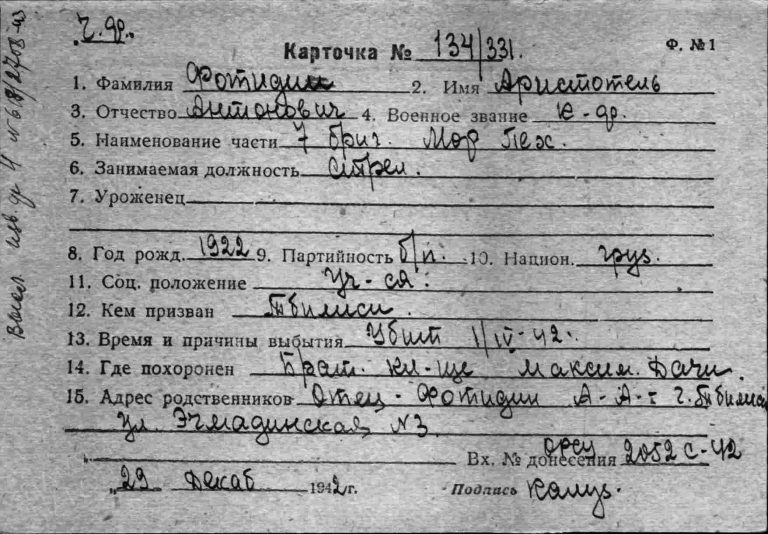 ч.др.
Карточка № 134/331. Ф. №1
1. Фамилия Фотидин 2. Имя Аристотель
3. Отчество Антонович 4. Военное звание к-др.
5. Наименование части 7 бриг. Мор Пех.
6. Занимаемая должность Стрел.
7. Уроженец
8. Год рожд. 1922 9. Партийность б/п. 10. Национ. груз.
11. Соц. положение Уч-ся.
12. Кем призван Тбилиси.
13. Время и причины выбытия Убит 1/IV-42.
14. Где похоронен Брат. кл-ще Максим. Дачи.
15. Адрес родственников Отец - Фотидин А-А-г. Тбилиси
ул. Эчмадинская, N3.
Вх. № донесения 2052 с-42
"29" Декаб 1942г. Подпись